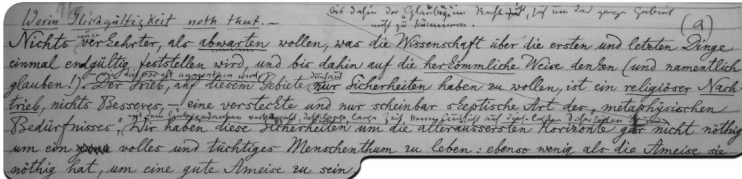 bis dahin der Gläubige im Rechte ist, sich um das ganze Gebiet
nicht zu kümmern.
Worin Gleichgültigkeit noth thut. —
(a)
Nichts verkehrter, als abwarten wollen, was die Wissenschaft über die ersten und letzten Dinge
einmal endgültig feststellen wird, und bis dahin auf die herkömmliche Weise denken (und namentlich
glauben!). Der Trieb, auf diesem Gebiete durchaus nur Sicherheiten haben zu wollen, ist ein religiöser Nach-
trieb, nichts Besseres, — eine versteckte und nur scheinbar skeptische Art des „metaphysischen
Bedürfnisses". Wir haben diese Sicherheiten um die alleräussersten Horizonte gar nicht nöthig
um ein volles und tüchtiges Menschenthum zu leben: ebenso wenig als die Ameise sie
nöthig hat, um eine gute Ameise zu sein.